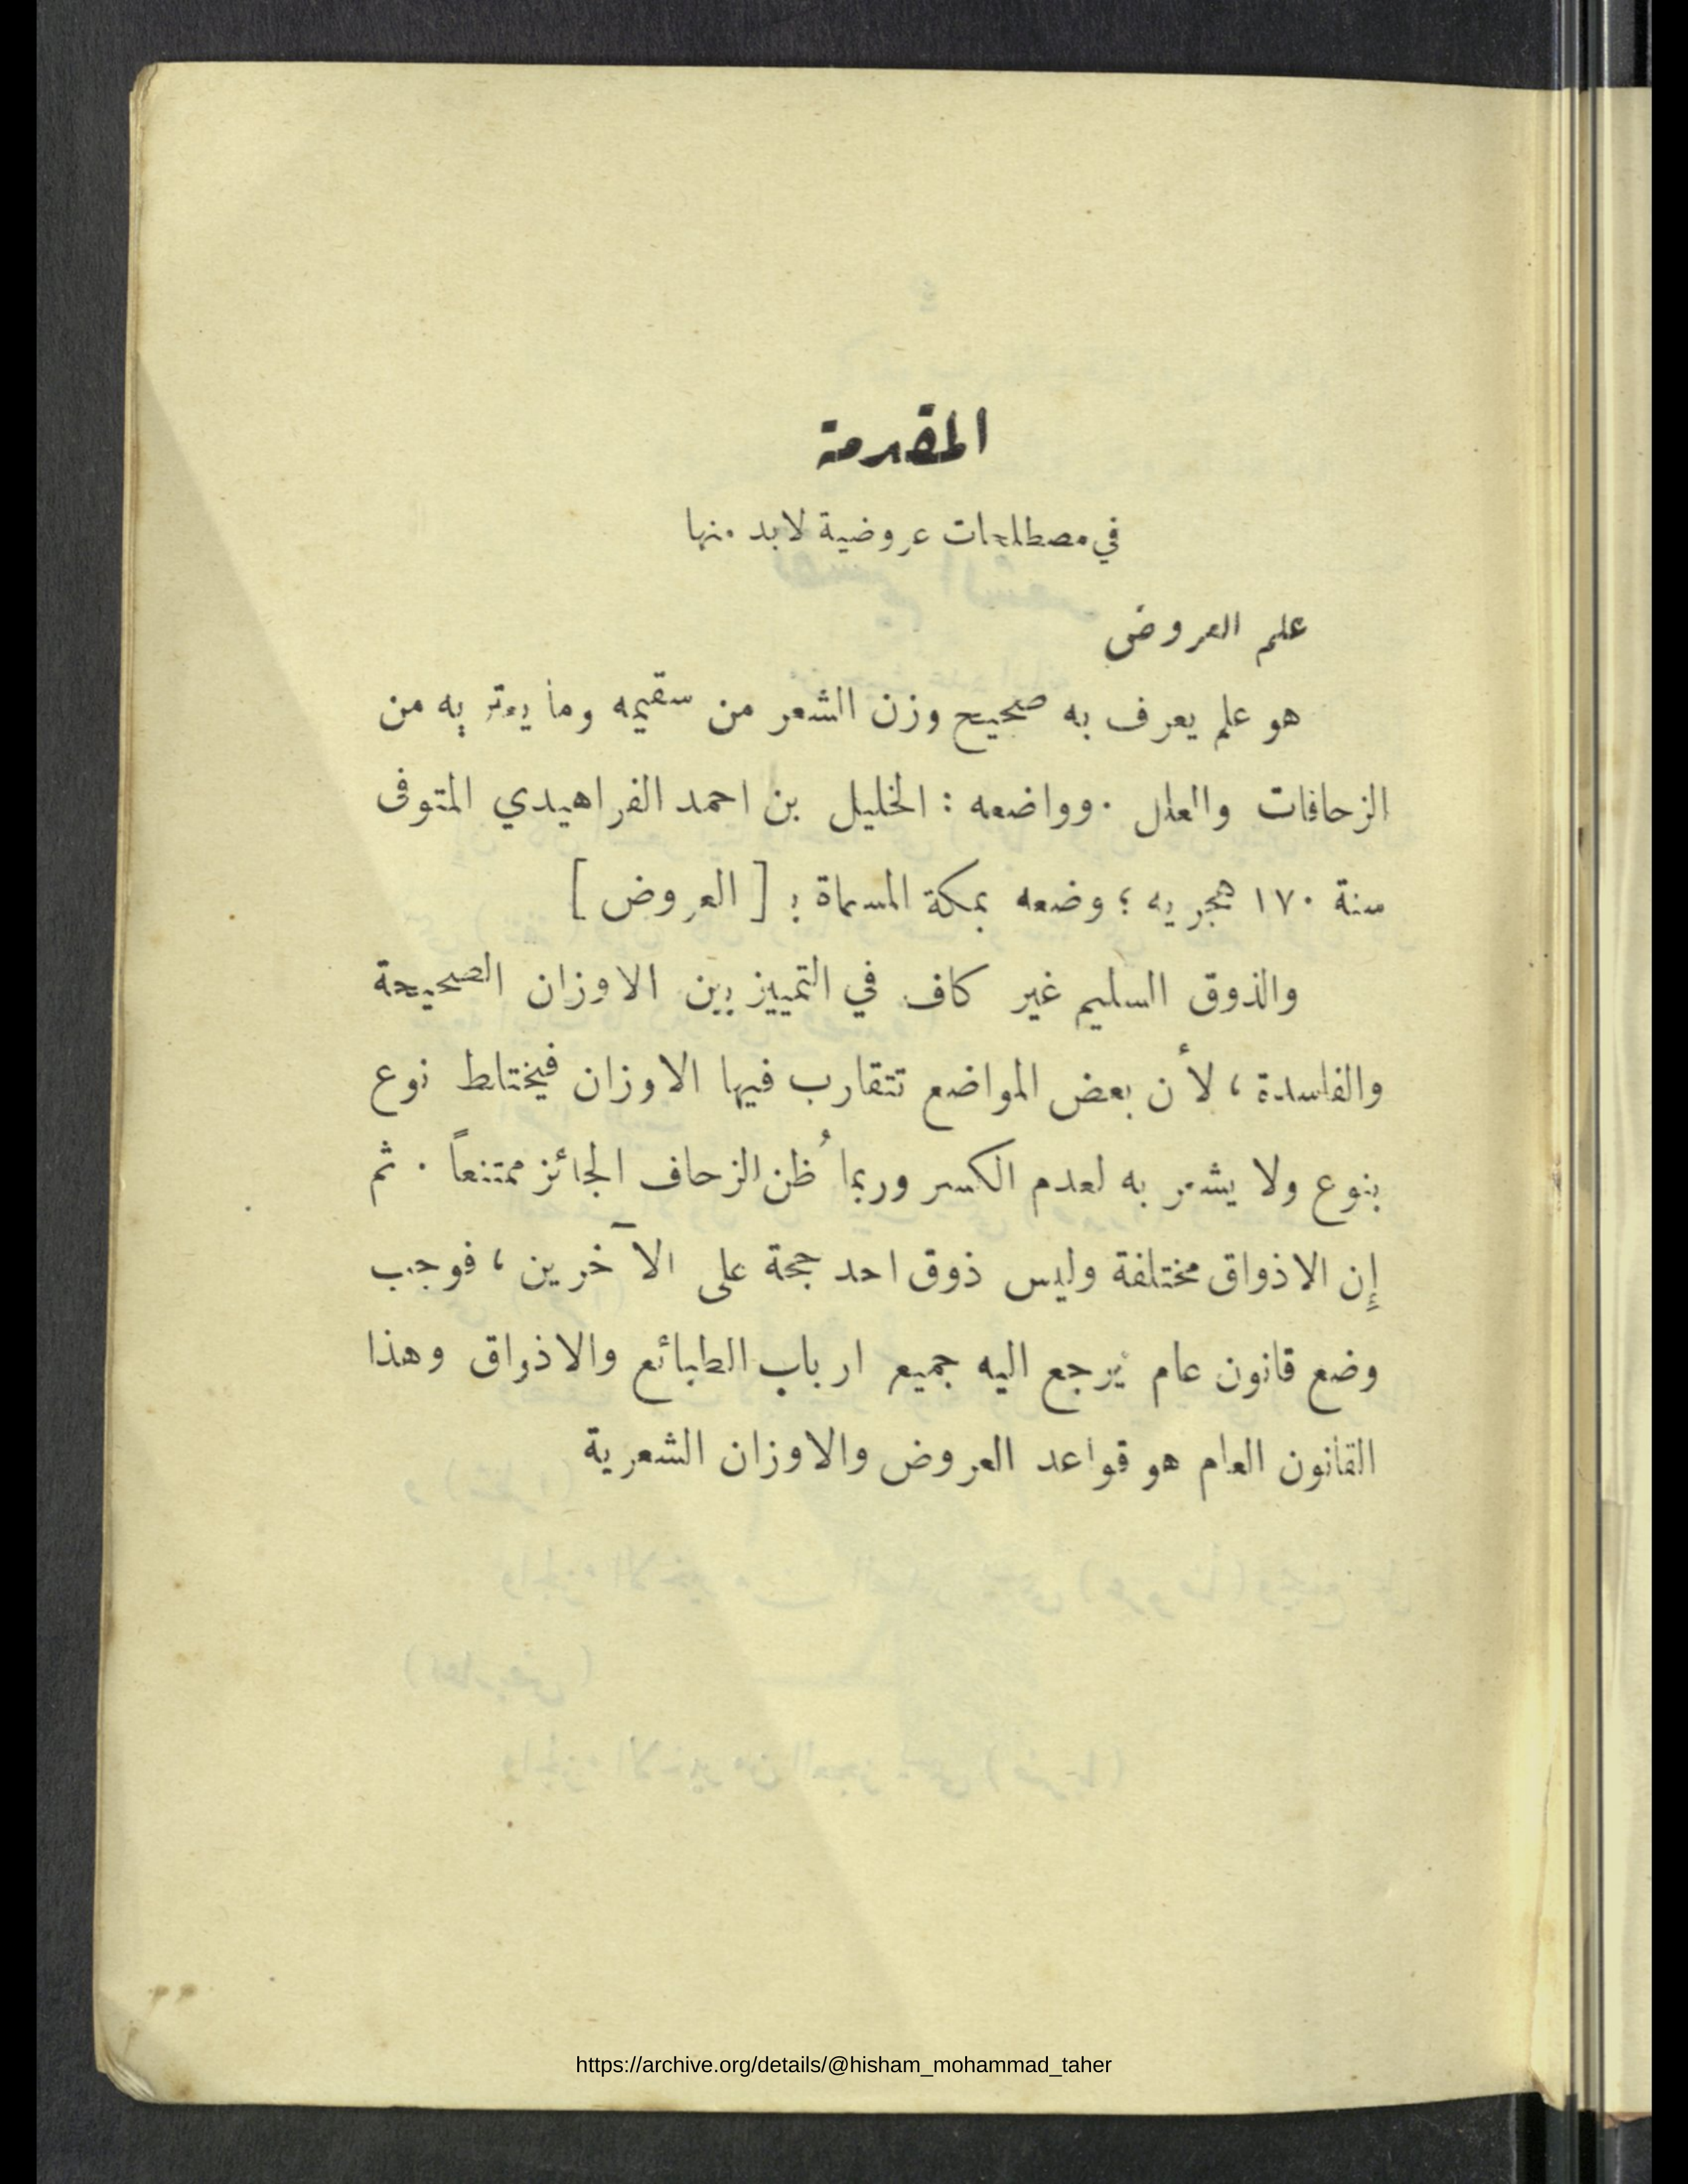 المقدمة
في مصطلحات عروضية لابد منها
علم العروض
هو علم يعرف به صحيح وزن الشعر من سقيمه وما يعتر به من
الزحافات والعلل . وواضعه : الخليل بن احمد الفراهيدي المتوفى
سنة ١٧٠ هجريه ؛ وضعه بمكة المسماة بـ [ العروض ]
والذوق السليم غير كاف في التمييز بين الاوزان الصحيحة
والفاسدة ، لأن بعض المواضع تتقارب فيها الاوزان فيختلط نوع
بنوع ولا يشعر به لعدم الكسر وربما ُظن الزحاف الجائز ممتنعاً . ثم
إِن الاذواق مختلفة وليس ذوق احد حجة على الآخرين ، فوجب
وضع قانون عام يرجع اليه جميع ارباب الطبائع والاذواق وهذا
القانون العام هو قواعد العروض والاوزان الشعرية
https://archive.org/details/@hisham_mohammad_taher